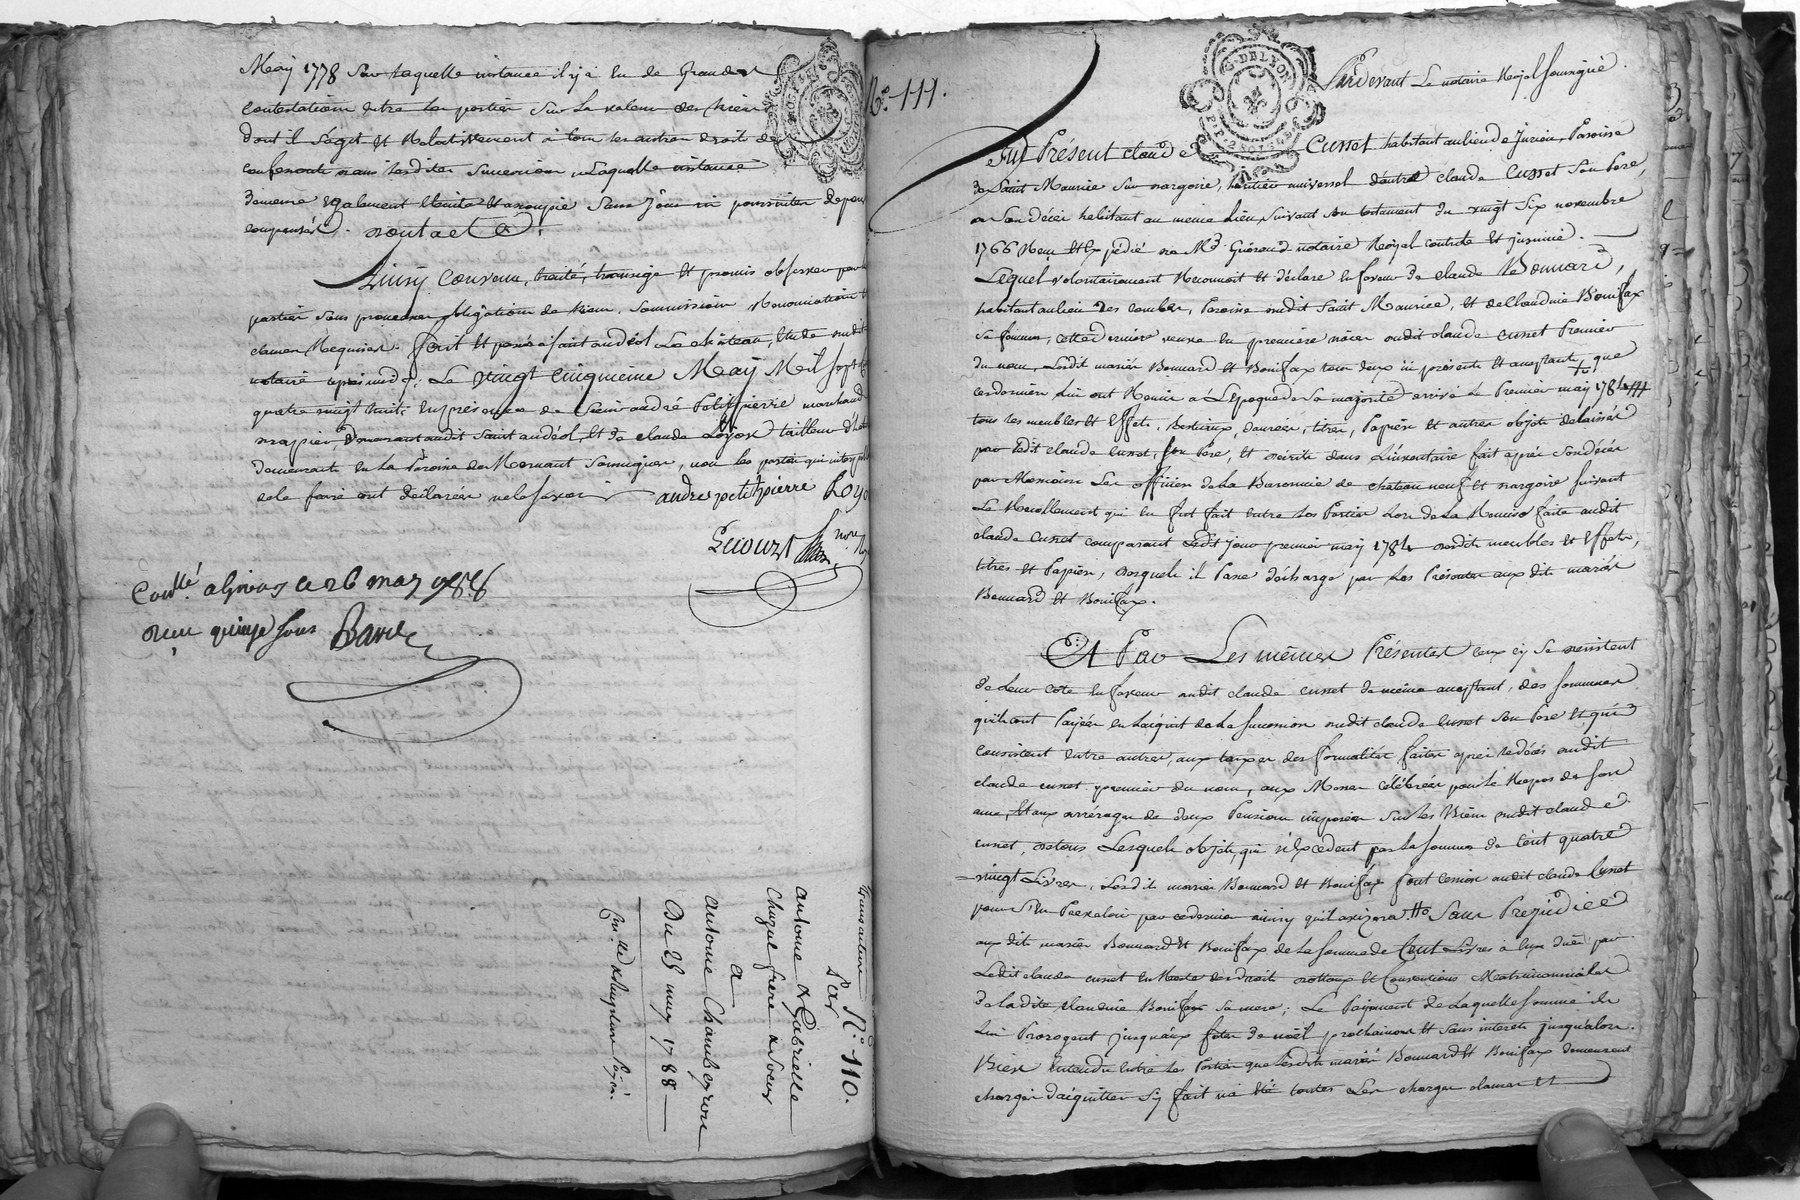 May 1778 Sur laquelle instance il y a eu de Grandes
contestations entre les parties Sur la valeur des biens
dont il s'agit et Relativement à tous les autres droits de
confrerité dans lesdites Successions, Laquelle instance
demeure également éteinte et assoupie Sans jour ni poursuites depens
compensés. dont acte.
Ainsy Convenu, traité, transigé et promis observer par les
parties Sous pareilles obligations de biens, Soumissions Renonciations &
clauses Requises. fait et passé à Saint andéol Le château, Etude dudit
notaire après midy; Le vingt cinquieme May Mil Sept cent
quatre vingt huit; En présence de Sieur andré Petitpierre marchand
drapier, demeurant audit Saint andéol, et de claude Loyon tailleur d'habits
demeurant en la Paroisse de Mornant Soussignés, non les parties qui interpellées
de le faire ont déclaré ne le savoir
andre petitpierre Loyon
nore Ral
Controllé a Givors ce 26 may 1788
Recu quinze sous
Transaction
N° 110.
Par
antoine & Gabrielle
Chazue frere & soeur
a
antoine Chambeyron
Du 25 may 1788
N° 111.
G. DE LYON
Pardevant Le notaire Royal Soussigné.
Fut Présent claude Cusset habitant au lieu de Jurieu, Paroisse
de Saint Maurice Sur dargoire, héritier universel d'autre claude Cusset Son Pere,
à Son décès habitant au même Lieu, Suivant Son testament du vingt Six novembre
1766 Reçu et Expédié par Me Guéraud notaire Royal controlé et insinué.
Lequel volontairement Reconnoit et déclare en faveur de claude Bonnard,
habitant au lieu des combes, Paroisse dudit Saint Maurice, et de Claudine Bonifax
Sa femme, cette derniere veuve en premieres noces dudit claude Cusset Premier
du nom, Lesdits mariés Bonnard et Bonifax tous deux ici présents et acceptants, que
ces derniers Lui ont Remis à L'époque de Sa majorité arrivée Le Premier may 1784
tous les meubles et Effets, Bestiaux, danrées, titres, Papiers et autres objets délaissés
par ledit claude Cusset, Son Pere, et décrits dans L'inventaire fait après Son décès
par Messieurs Les officiers de la Baronnie de chateauneuf et dargoire Suivant
Le Recollement qui en fut fait entre les Parties Lors de La Remise faite audit
claude Cusset comparant Ledit jour premier may 1784 desdits meubles et Effets,
titres et Papiers, desquels il Passe décharge par Les Présentes auxdits mariés
Bonnard et Bonifax.
Et Par Les mêmes Présentes ceux cy Se désistent
de Leur coté en faveur audit claude Cusset de même acceptant, des Sommes
qu'ils ont Payées en L'acquit de La Succession dudit claude Cusset Son Pere et qui
consistent entre autres, aux taxes des formalités faites après le décès dudit
claude Cusset premier du nom, aux Messes célébrées pour le Repos de Son
ame, et aux arrérages de deux Pensions imposées Sur les Biens dudit claude
Cusset, de tous Lesquels objets, qui n'Excedent pas La Somme de Cent quatre
vingt Livres, Lesdits mariés Bonnard et Bonifax font Cession audit claude Cusset
pour S'en Prévaloir par ce dernier ainsy qu'il avisera. Sans Prejudice
auxdits mariés Bonnard et Bonifax de la Somme de Cent Livres à Eux dues par
Ledit claude Cusset en Reste des droits dottaux et Conventions Matrimoniales
de ladite claudine Bonifax Sa mere; Le Payement de Laquelle Somme ils
Lui Prorogent jusqu'aux fêtes de noël prochaines et Sans interets jusqu'alors.
Bien entendu entre les Parties que Lesdits mariés Bonnard et Bonifax demeurent
chargés d'acquitter S'y fait n'a été toutes Les charges clames et